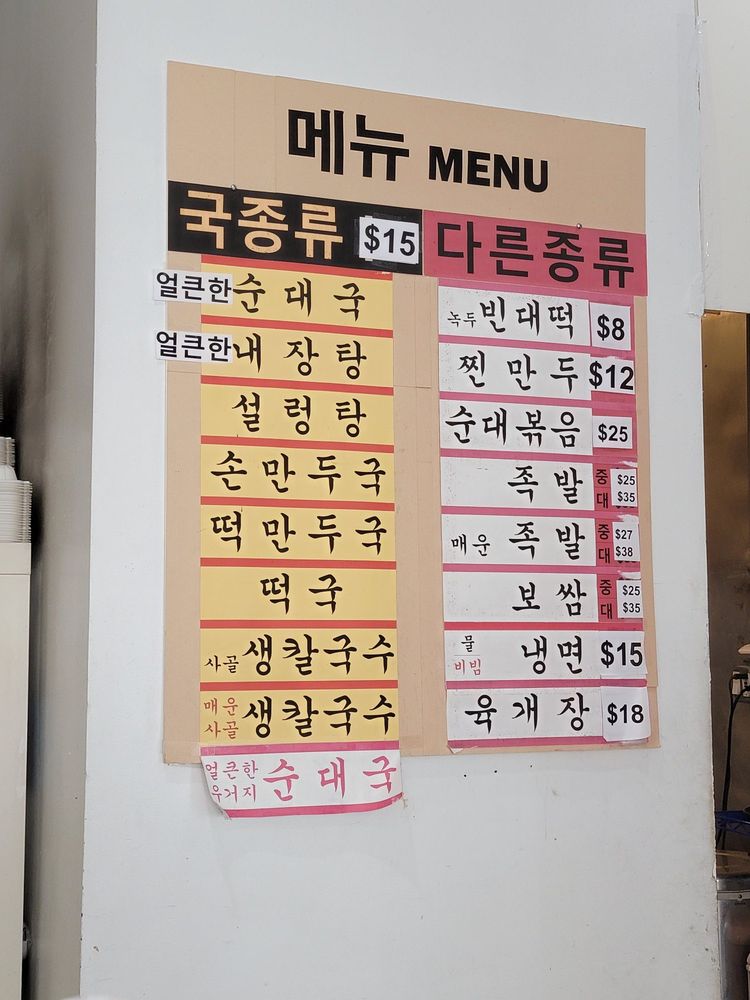 메뉴 MENU
국종류 $15
얼큰한 순대국
얼큰한 내장탕
설렁탕
손만두국
떡만두국
떡국
사골 생칼국수
매운 사골 생칼국수
얼큰한 우거지 순대국
다른종류
녹두 빈대떡 $8
찐만두 $12
순대볶음 $25
족발 중 $25
대 $35
매운 족발 중 $27
대 $38
보쌈 중 $25
대 $35
물 비빔 냉면 $15
육개장 $18